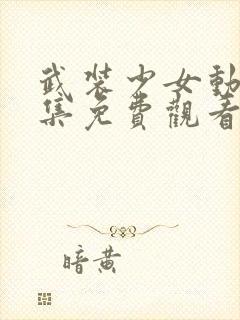 武裝少女動
集免費觀看
暗黃